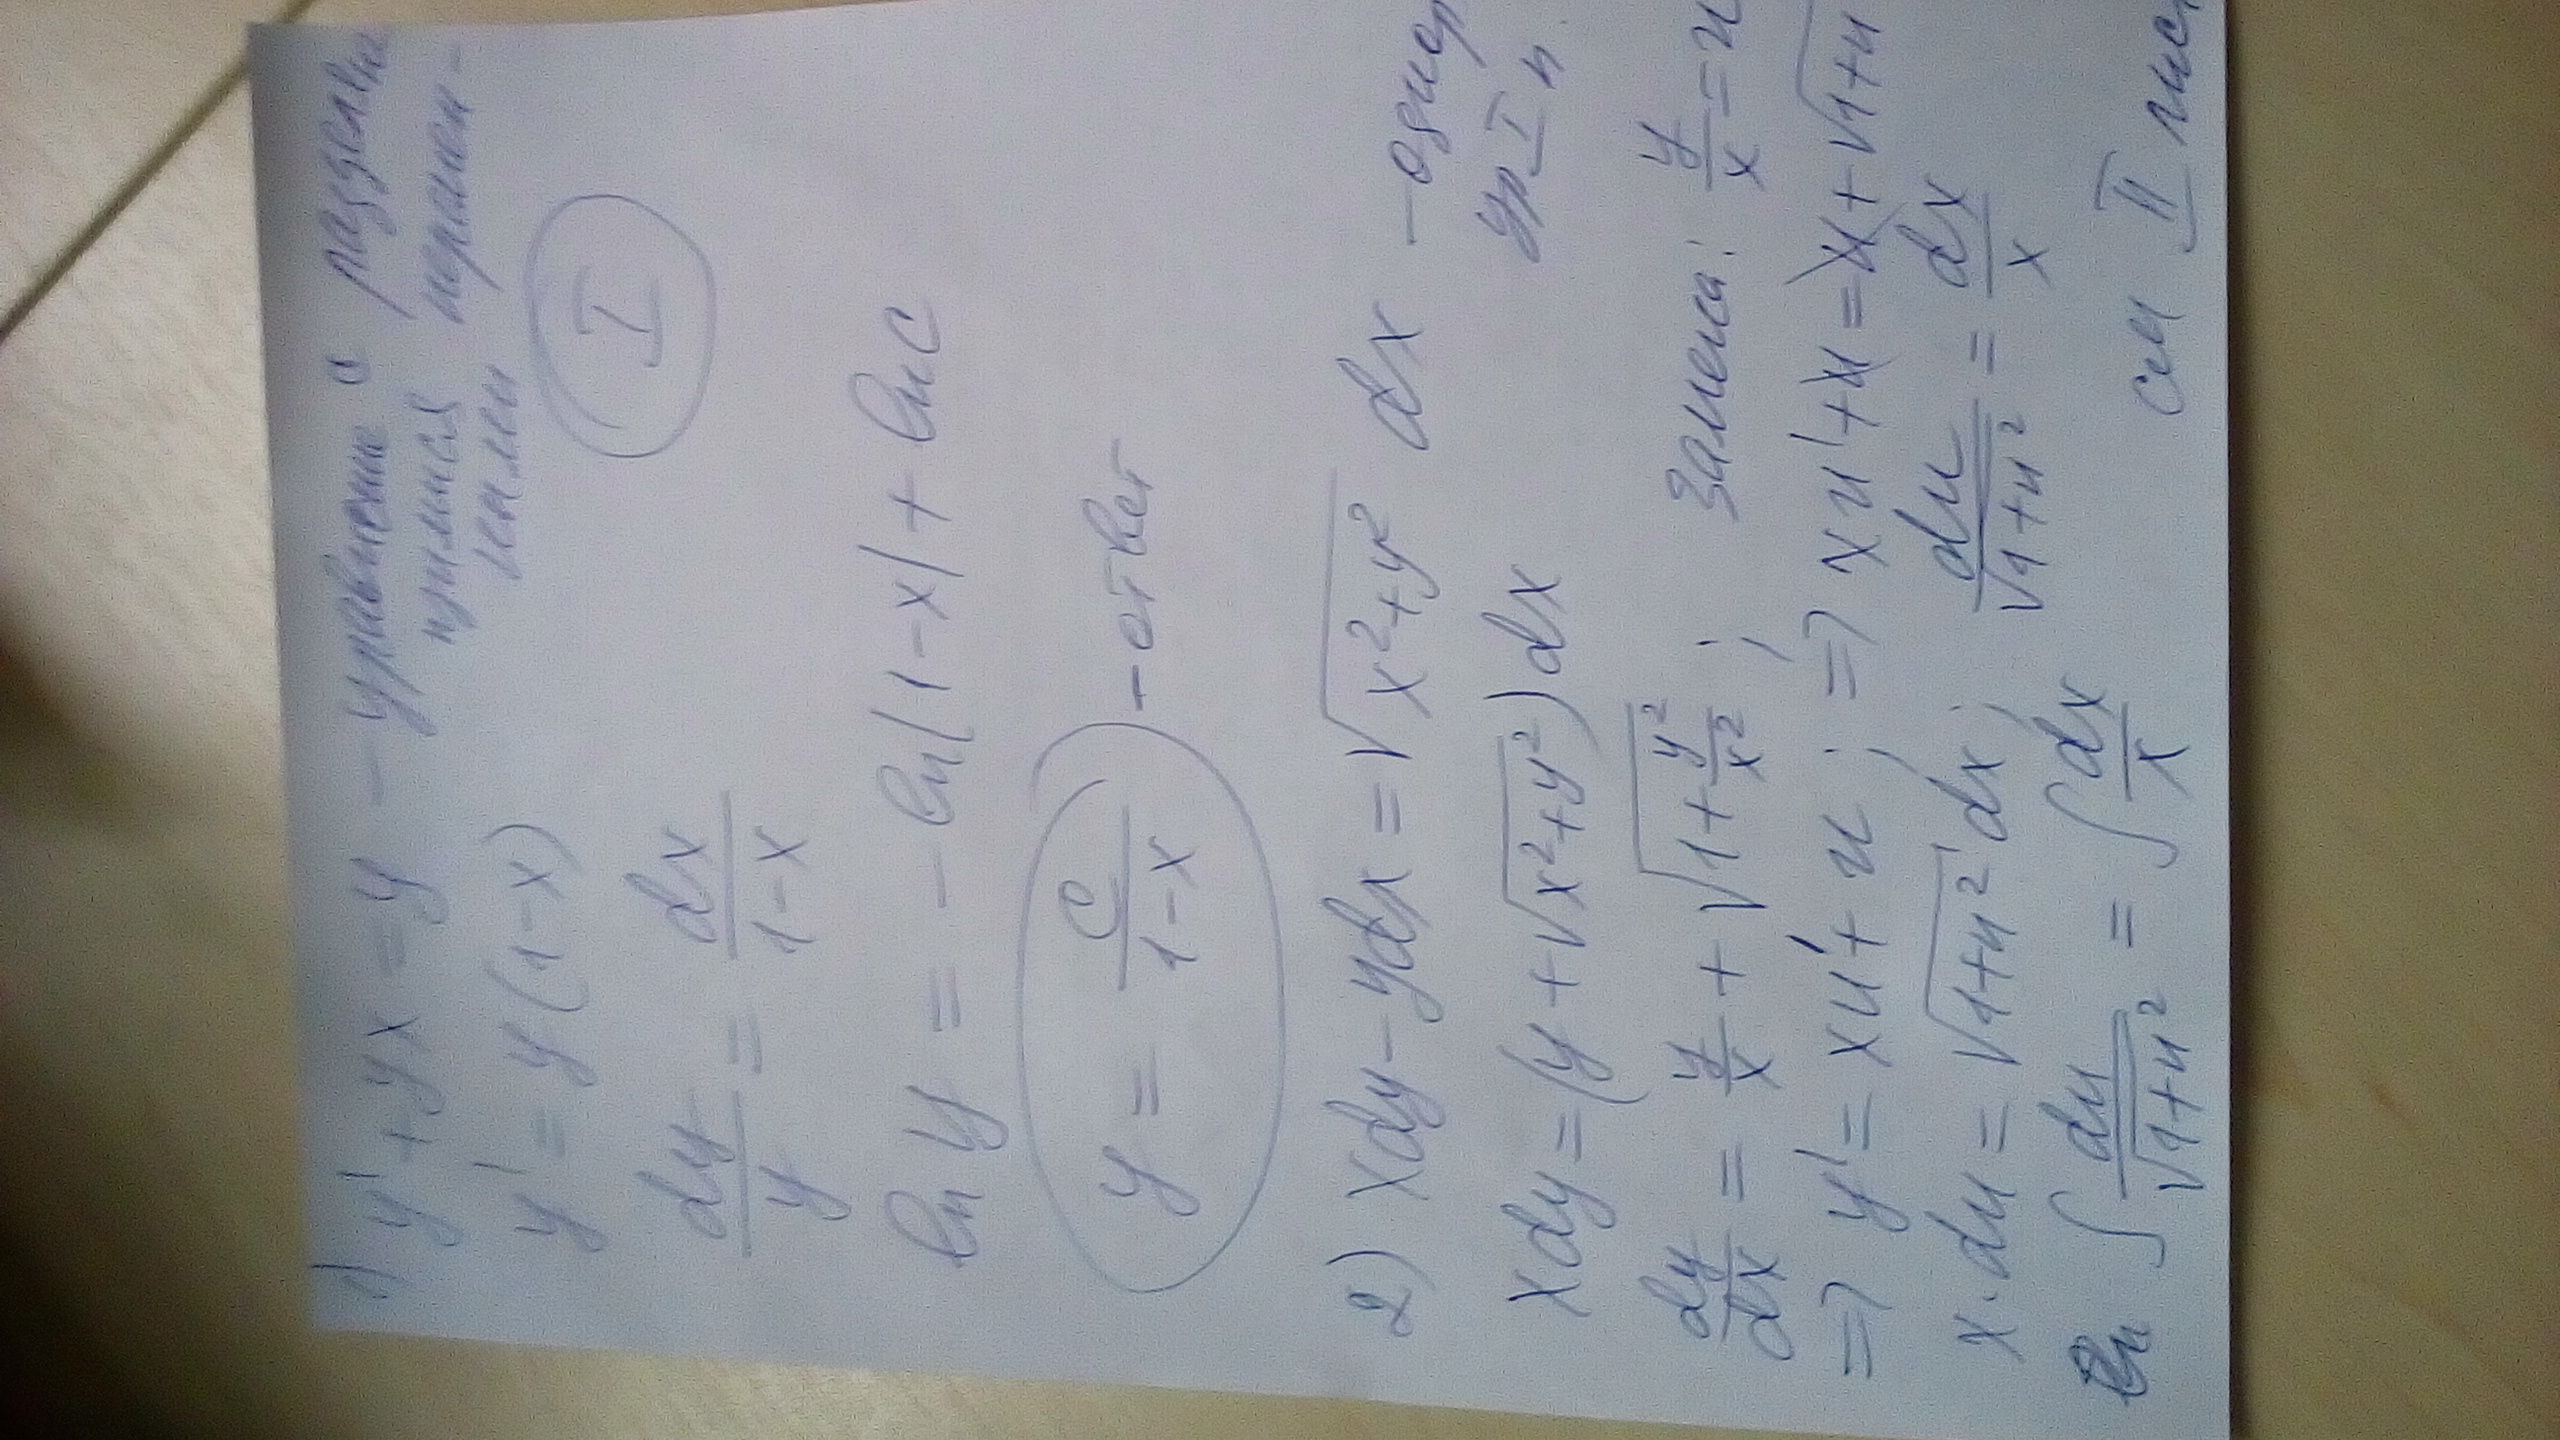 1) y' + yx = y – уравнение с разделяю
щимися перемен-
ными
y' = y(1-x)
I
dy/y = dx/(1-x)
ln y = -ln|1-x| + ln c
y = c/(1-x) - ответ
2) xdy - ydx = √(x²+y²) dx - однор
ур I п.
xdy = (y + √(x²+y²))dx
dy/dx = y/x + √(1+y²/x²) ; замена: y/x = u
=> y' = xu' + u ; => xu' + u = u + √(1+u
x·du = √(1+u²) dx ; du/√(1+u²) = dx/x
∫ du/√(1+u²) = ∫ dx/x
см II лист